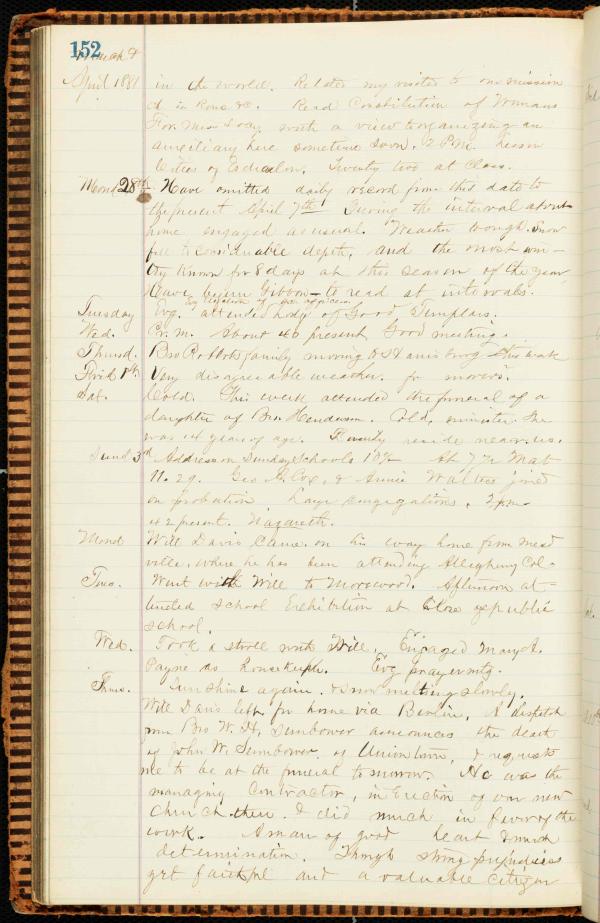 152
March &
April 1881 in the world. Related my visits to our mission
in Rome &c. Read Constitution of Womans
For. Miss. Socy. with a view to organizing an
auxiliary here sometime soon. 2 P.M. Lesson
Cities of Twenty two at Class.
Mond 28th Have omitted daily record from this date to
the present April 7th During the interval about
home engaged as usual. Weather rough. Snow
fell to considerable depth, and the most win-
try known for 8 days at this season of the year.
Have begun Gibbon - to read at intervals.
By of
Tuesday Evg. attended Lodge of Good Templars.
Wed. Pr. m. About 40 present Good meeting.
Thursd. Bro family moving to this week
Frid 1st. Very disagreeable weather for movers.
Sat. Cold. This week attended the funeral of a
daughter of Bro. Henderson. Old minister. She
was 14 years of age. Family reside near us.
Sund 3d Address on Sunday Schools 10½ At 7½ Mat
11. 29. Geo G. Cox, & Annie Wallace joined
on probation. Large congregations. 2 p.m.
42 present. Nazareth.
Mond Will Davis came on his way home from Mead
ville, where he has been attending Allegheny Col-
Tues. Went with Will to Afternoon at-
tended School Exhibition at close of public
school.
Wed. Took a stroll with Will. Engaged Mary A.
Payne as housekeeper. Evg prayer mtg.
Thurs. Sun shine again. & Snow melting slowly.
Will Davis left for home via Berlin. A dispatch
from Bro W. H. Sembower announces the death
of John W. Sembower, of Uniontown, & requests
me to be at the funeral tomorrow. He was the
managing Contractor, in Erection of our new
Church there. & did much in favor of the
work. A man of good heart & much
determination. Though strong prejudices
yet faithful and a valuable citizen